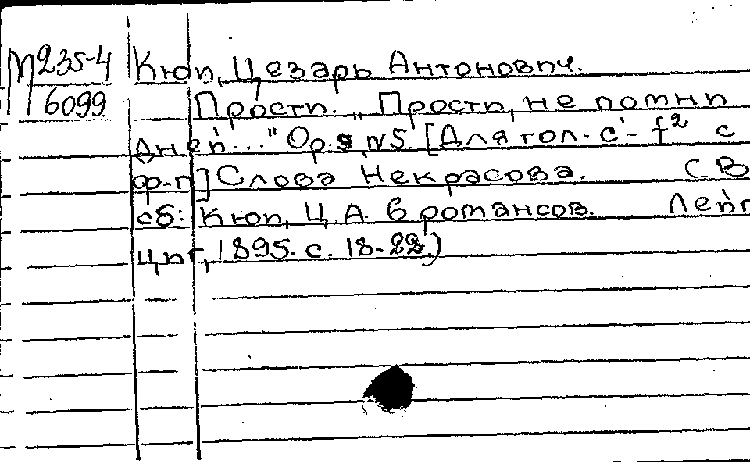 М235-4
6099
Кюи, Цезарь Антонович.
Прости. „Прости, не помни
дней..." Op.5, N5 [Для гол. c'- f² с
ф-п] Слова Некрасова. (В
сб: Кюи, Ц.А. 6 романсов. Лейп
циг, 1895. с. 18-22.)